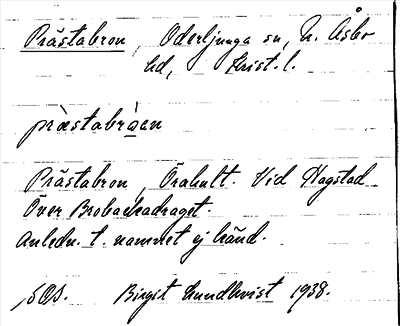 Prästabron, Oderljunga sn, N. Åsbo
hd, Krist. l.
pràstabràen
Prästabron, Örahult. Vid Hagstad
Över Brobackadraget.
Anledn. t. namnet ej känd.
SOS. Birgit Lundkvist 1938.